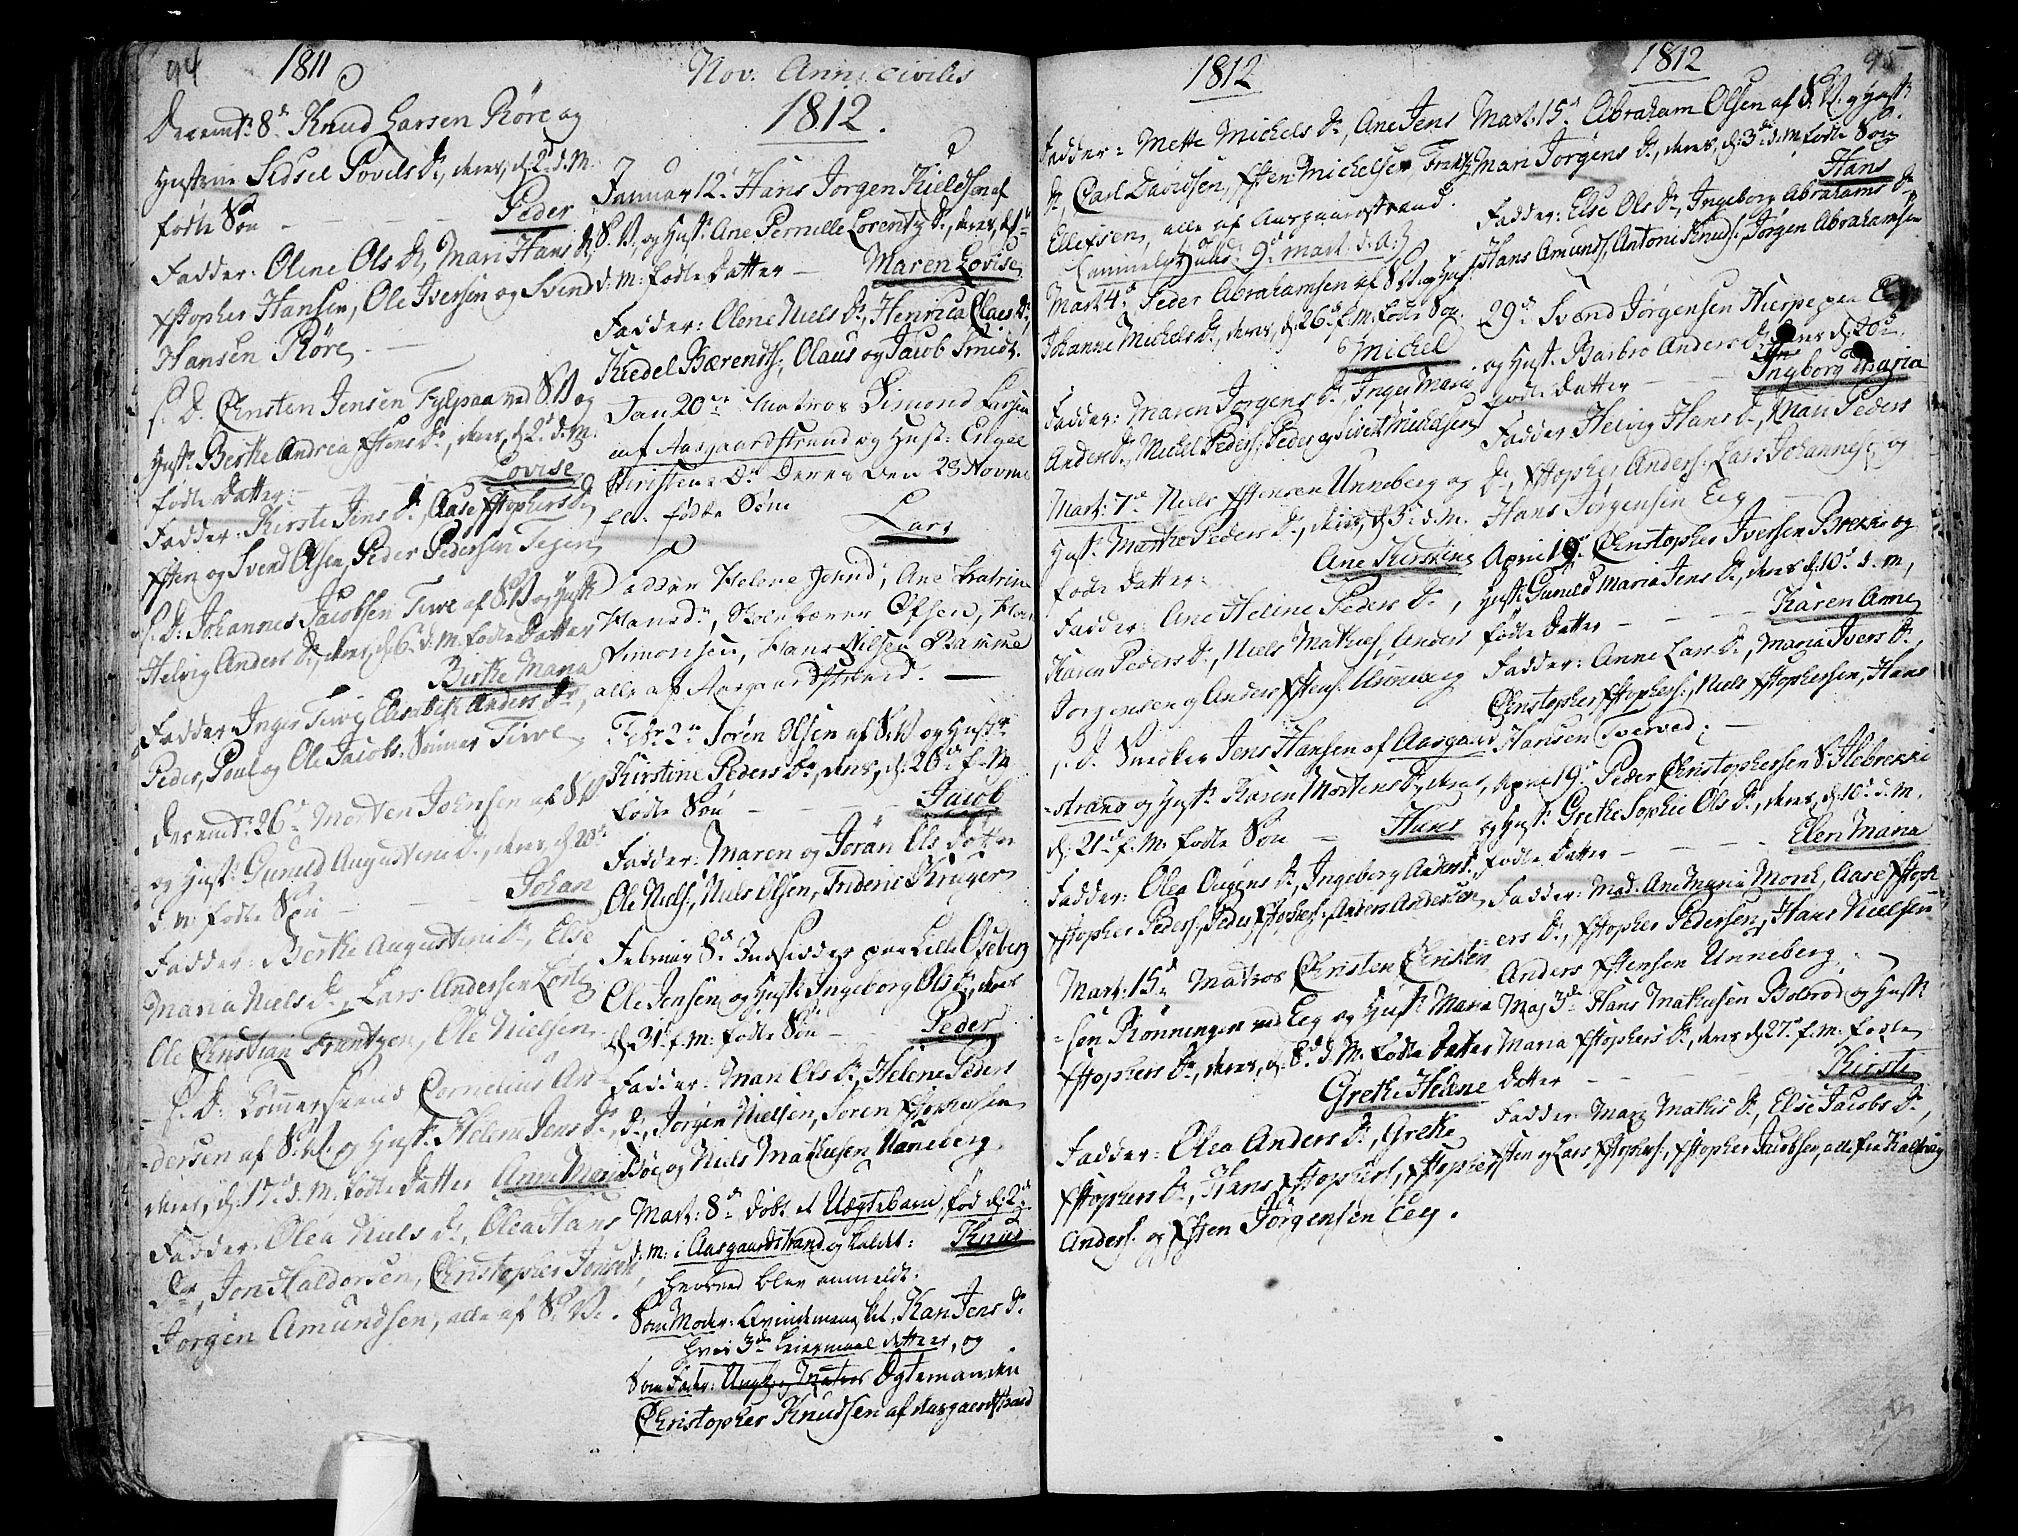 94
1811
Decemb: 8d. Knud Larsen Röre og
Hustrue Sidsel Povels Dr., deres, d. 2d. d. M.
fødte Søn — — — Peder
Fadder: Olene Ols Dr, Mari Hans Dr,
Xstopher Hansen, Ole Iversen og Svend
Hansen Röre. —
S. D. Christen Jensen Fylpaa ved S.V. og
Hust. Berthe Andrea Xstens Dr., deres, d. 2d. d. M.
fødte Datter: — — Lovise
Fadder: Kirsti Jens Dr, Aase Xstophers Dr,
Xsten og Svend Olsen, Peder Pedersen Tegen
S. D. Johannes Jacobsen Tewe af S.V. og Hust.
Helvig Anders Dr., deres, d. 6d. d. M. fødte Datter
Berthe Maria
Fadder Inger Tewe, Elisabeth Anders Dr,
Peder, Poul og Ole Jacobs. Tewe
Decemb: 26d. Morten Johnsen af S.V.
og Hust. Gunild Augustini Dr., deres, d. 20de
d. M. fødte Søn — — — Johan
Fadder: Berthe Augustini Dr., Else
Maria Niels Dr, Lars Andersen
Ole Christian Frantzen, Ole Nielsen
S. D. Cornelius An-
-dersen af S.V. og Hust. Helene Jens Dr.,
deres, d. 17d. d. M. fødte Datter Anne Mari
Fadder: Olea Niels Dr., Olea Hans
Dr, Jon Haldorsen, Christopher Jensen,
Jørgen Amundsen, alle af S.V.
Nov. Anni civilis
1812.
Januar 12d. Hans Jørgen Kieldsen af
S.V. og Hust. Ane Pernille Lorentz Dr., deres,
d. M. fødte Datter — Maren Lovise
Fadder: Olene Niels Dr, Henrica Claes Dr,
Kiedel Bærendts., Olaus og Jacob Smidt.
Jan 20de Matros Simond Larsen
af Aasgaardstrand og Hust: Engel
Kristens Dr Deres den 28 Novem
f.a. fødte Søn
Lars
Fadder Helene Johnd, Ane Katrine
Hansdr, Skolelærer Ofsen, Hans
Simonsen, Hans Nilsen Ramme
alle af Aasgaardstrand. —
Febr. 2d Sören Olsen af S.V. og Hustr.
Kirstine Peders Dr, deres, d. 26d. f. M.
fødte Søn — — — Jacob
Fadder: Maren og Jöran Els Datter
Ole Niels., Niels Olsen, Frideric Krüger
Februar 8d. Indsidder paa Lille Oseberg
Ole Jensen og Hust. Ingeborg Ols Dr, deres
d. 31d. f. M. fødte Søn — Peder
Fadder: Mari Ols Dr, Helene Peders
Dr, Jørgen Nielsen, Sören Xstophersen
Bøe og Niels Mathisen Unneberg.
Mart: 8d. døbt et Uægtebarn, fød d. 2d.
d. M. i Aasgaardstrand og kaldet: Knud
hvorved blev anmeldt:
Som Moder: Qvindemennesket, Kari Jens Dr.
hvis 3de Leiermaal dette er, og
Som Fader: Ungk. og Matros Ægtemanden
Christopher Knudsen af Aasgaardstrand
1812
Fadder: Mette Michels Dr., Ane Jens
Dr, Carl Davidsen, Xsten Michelsen
Ellefsen, alle af Aasgaardstrand.
Mart. 4d. Peder Abrahamsen af S.V. og Hust.
Johanne Michels Dr, deres, d. 26d. f. M. fødte Søn.
Michel
Fadder: Maren Jørgens Dr, Inger Marie
Anders Dr, Michel Peders., Peder og Sivert Michelsen
Mart: 7de. Niels Xstensen Unneberg og
Hust. Marthe Peders Dr., deres, d. 5d. d. M.
fødte Datter: Ane Kirstine
Fadder: Ane Heline Peders Dr,
Karen Peders Dr, Niels Mathis., Anders
Jørgensen og Anders Xstens. Unneberg
S. D. Snedker Jens Hansen af Aasgaard-
-strand og Hust. Karen Mortens Dr, deres,
d. 21d. f. M. fødte Søn — Hans
Fadder: Olea Ougens Dr, Ingeborg Anders Dr,
Xstopher Peders., Peder Xstophers., Anders Andersen
Mart. 15d. Matros Christen Christen-
-sen Rönningen ved Eeg og Hust. Maria
Xstophers Dr., deres, d. 8d. d. M. fødte Datter
Grethe Helene
Fadder: Olea Anders Dr, Grethe
Xstophers Dr., Hans Xstophers., Xstopher
Anders. og Xsten Jørgensen Eeg.
1812
95
Mart. 15d Abraham Olsen af S.V. og Hustr.
Mari Jørgens Dr., deres, d. 3d. d. M. fødte Søn
Hans
Fadder: Else Ols Dr, Ingeborg Abrahams Dr,
Hans Amunds., Antoni Knuds., Jørgen Abrahamsen
29d. Svend Jørgensen Hierpe paa Eeg
og Hust. Barbro Anders Dr, deres, d. 20d.
fødte Datter — — Ingborg Maria
Fadder Helvig Hans Dr, Mari Peders
Dr, Xstopher Anders., Lars Johannes. og
Hans Jørgensen Eeg —
April 19. Christopher Iversen Brekke og
Hust. Gunild Maria Jens Dr, deres d. 10d. d. M,
fødte Datter — — — Karen Anne
Fadder: Anne Lars Dr, Maria Ivers Dr,
Christopher Xstophers., Niels Xstophersen, Hans
Hansen Tverved. —
April 19d. Peder Christophersen S. Slebrekke
og Hust. Grethe Sophie Ols Dr, deres, d. 10d. d. M.
fødte Datter — — — Elen Maria
Fadder: Mad. Ane Maria Monk, Aase Xstoph-
ers Dr, Xstopher Pedersen, Hans Nielsen
Anders Xstensen Unneberg. —
Maj 3de Hans Mathisen Bolerød og Hust.
Maria Xstophers Dr., deres d. 27d. f. M. fødte
Datter — — — Kirsti
Fadder: Mari Mathis Dr, Else Jacobs Dr,
Xsten og Lars Xstophers., Xstopher Jacobsen, alle fra